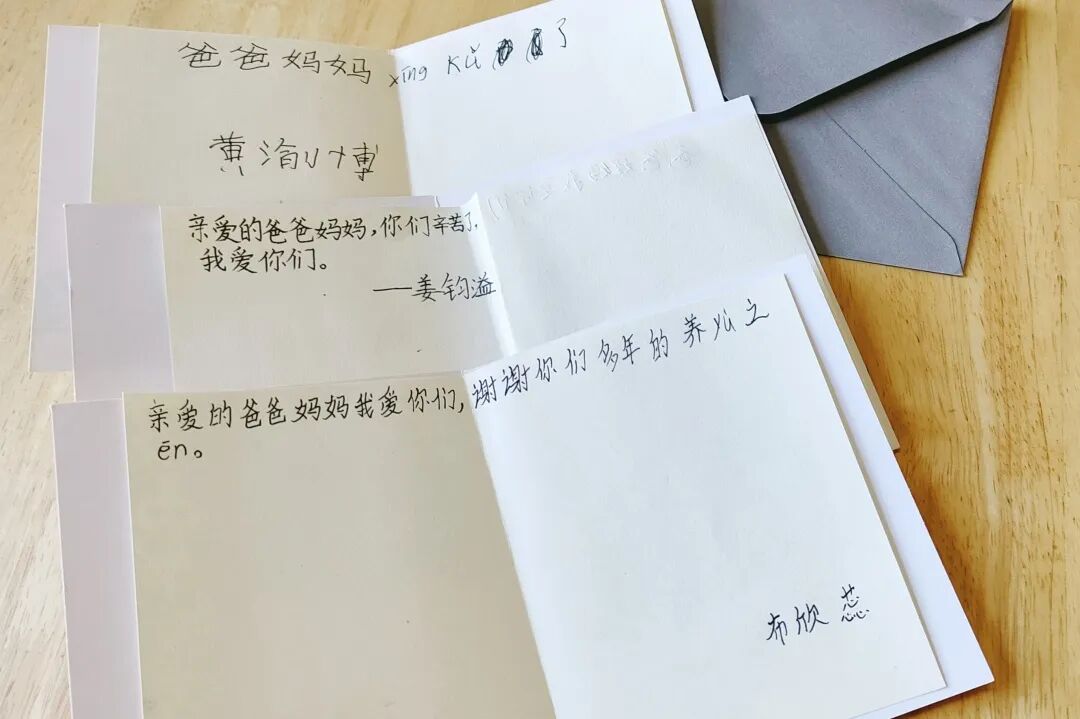 爸爸妈妈 xīng kǔ 了
黄渝博
亲爱的爸爸妈妈,你们辛苦了,
我爱你们。
——姜钧溢
亲爱的爸爸妈妈我爱你们,谢谢你们多年的养yù之
ēn。
布欣蕊